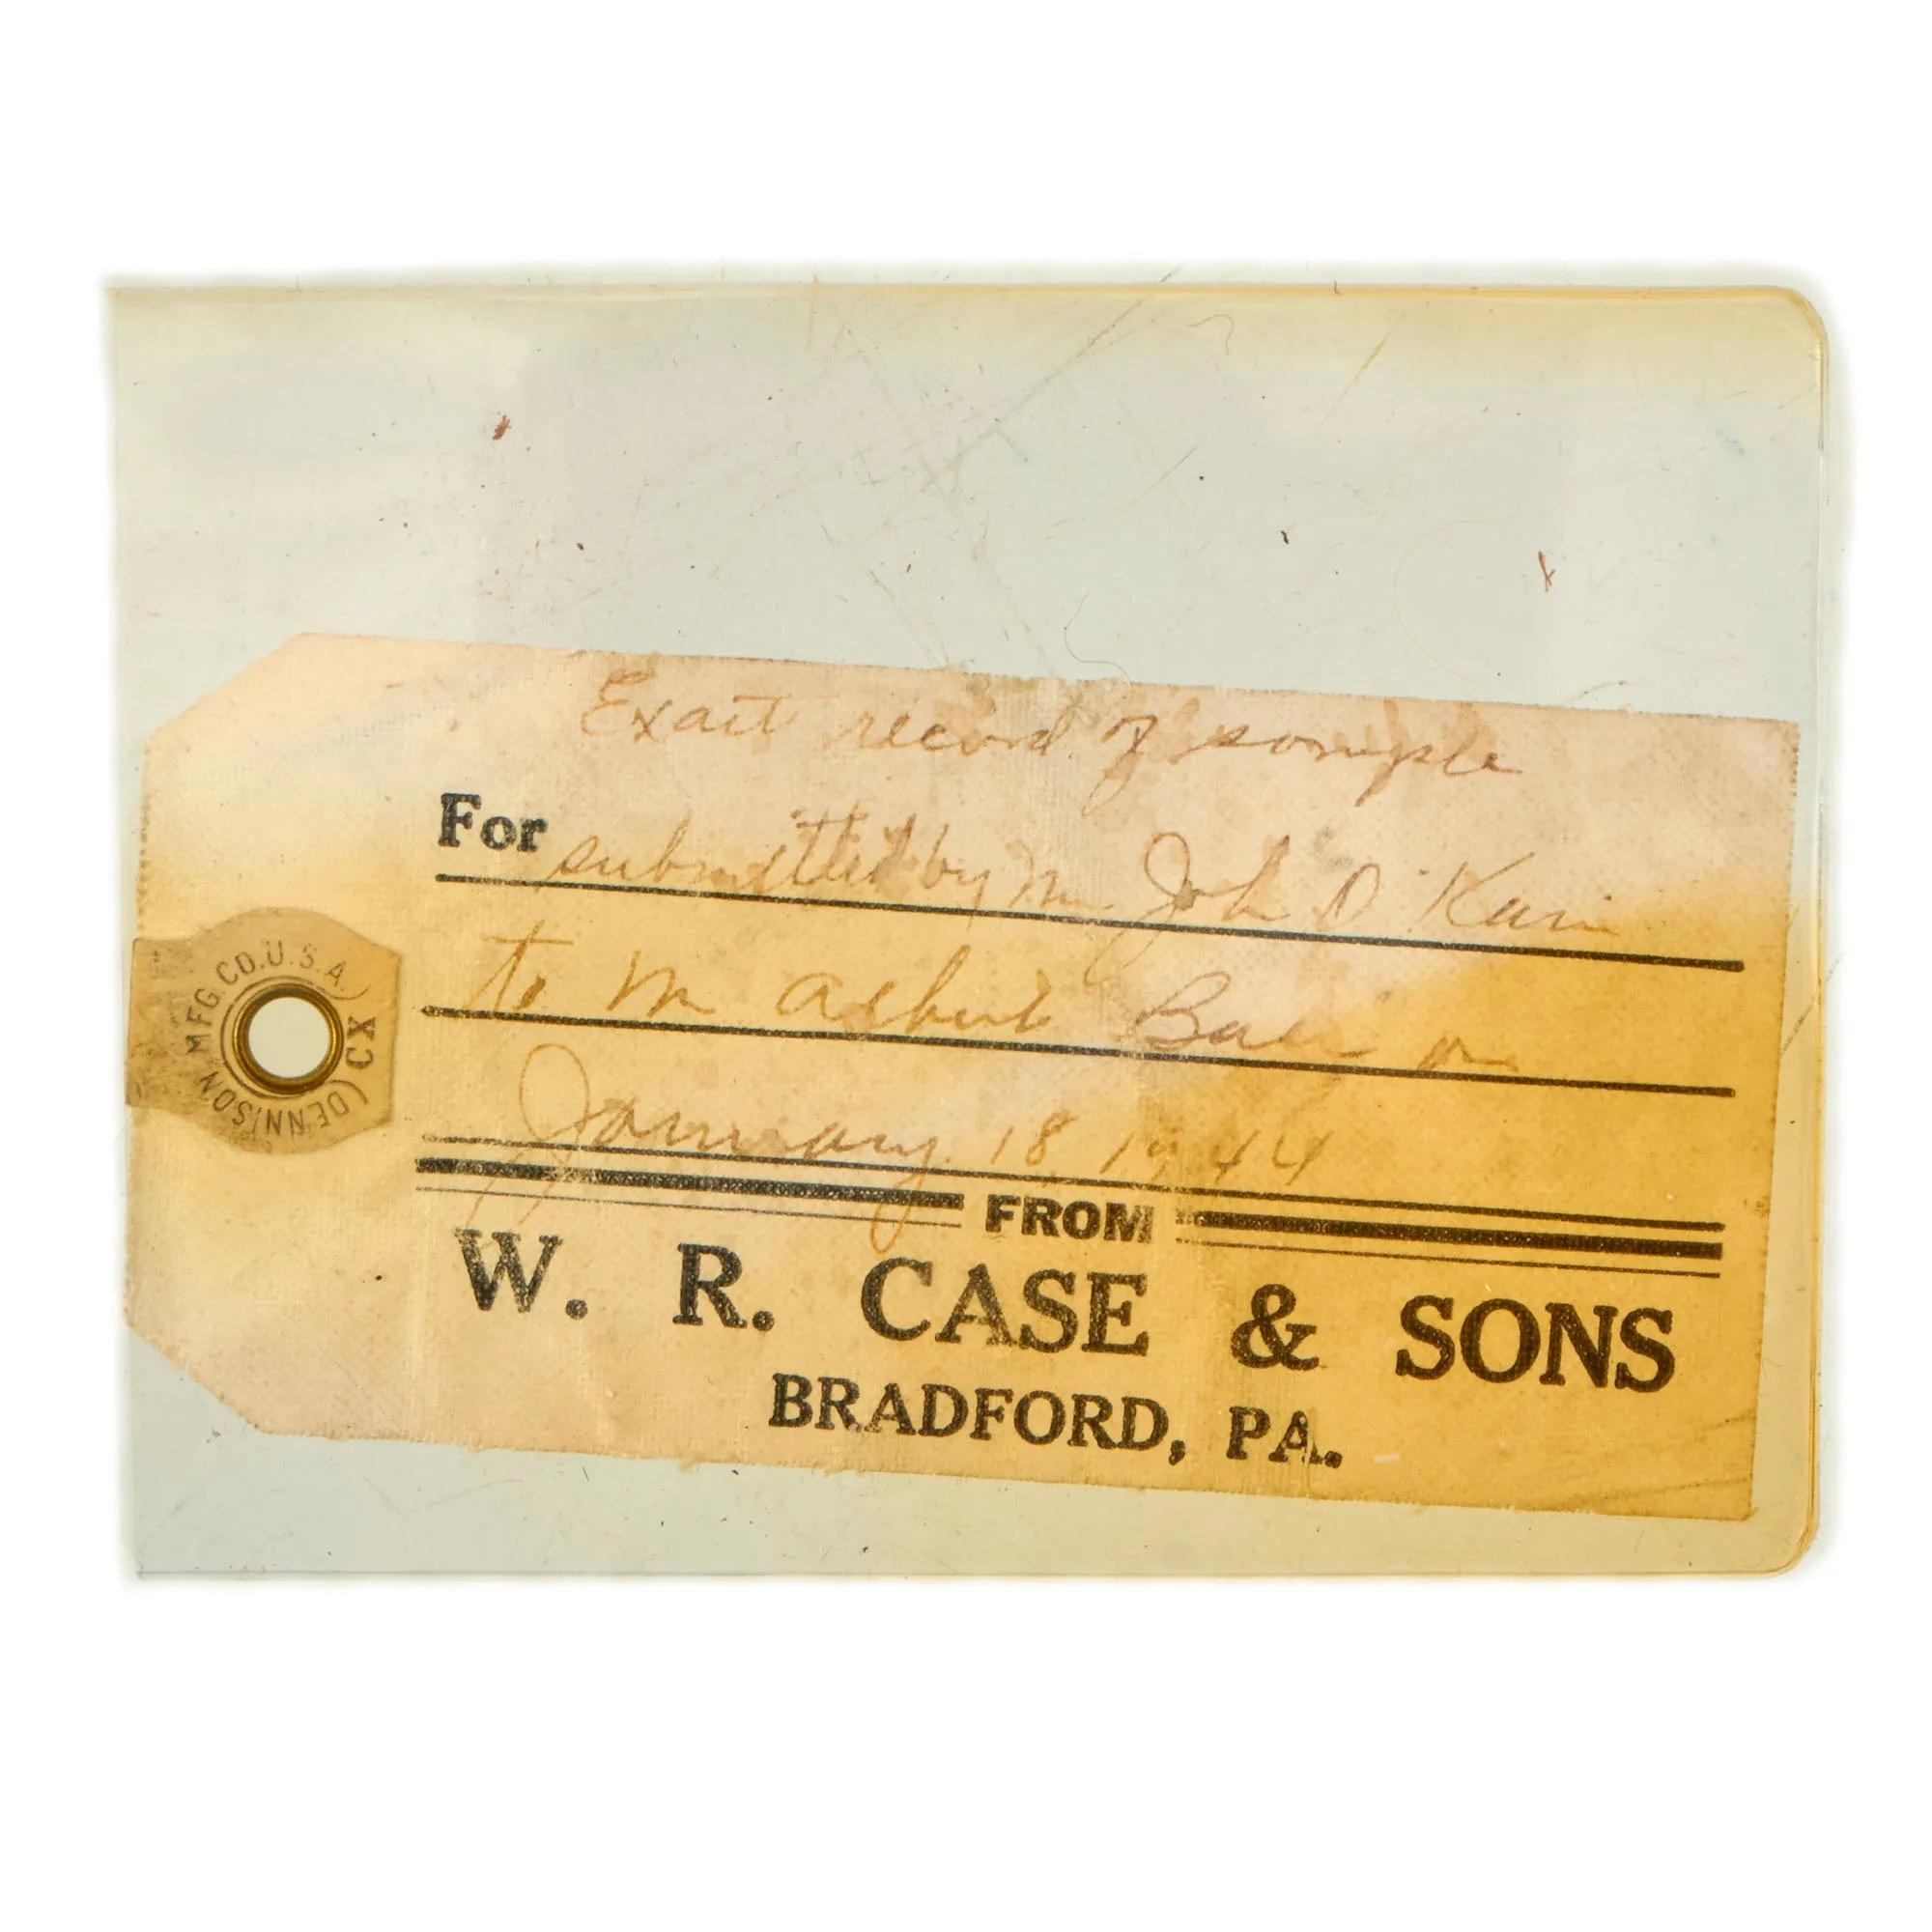 Exact record of sample
For submitted by Mr John D
to M Baer on
January 18, 1944
FROM
W. R. CASE & SONS
BRADFORD, PA.
(DENNISON MFG.CO.U.S.A.) CX